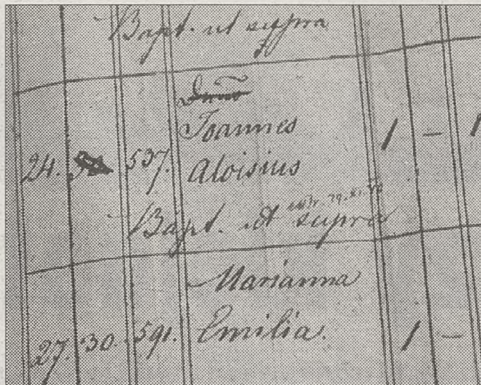 Bapt. ut supra
Joannes
24. 537. Aloisius 1 – 1
Bapt. ut supra
Marianna
27. 30. 591. Emilia. 1 –